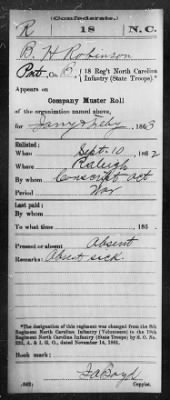 (Confederate.)
R 18 N.C.
B. H Robinson
Pvt. Co. B, 18 Reg't North Carolina
Infantry (State Troops).*
Appears on
Company Muster Roll
of the organization named above,
for Jany & Feby, 1863
Enlisted:
When Sept. 10, 1862
Where Raleigh
By whom Conscript Act
Period War
Last paid:
By whom
To what time , 186 .
Present or absent Absent
Remarks: Absent sick
*The designation of this regiment was changed from the 8th
Regiment North Carolina Infantry (Volunteers) to the 18th
Regiment North Carolina Infantry (State Troops) by S. O. No.
222, A. & I. G. O., dated November 14, 1861.
Book mark:
(642) Copyist.